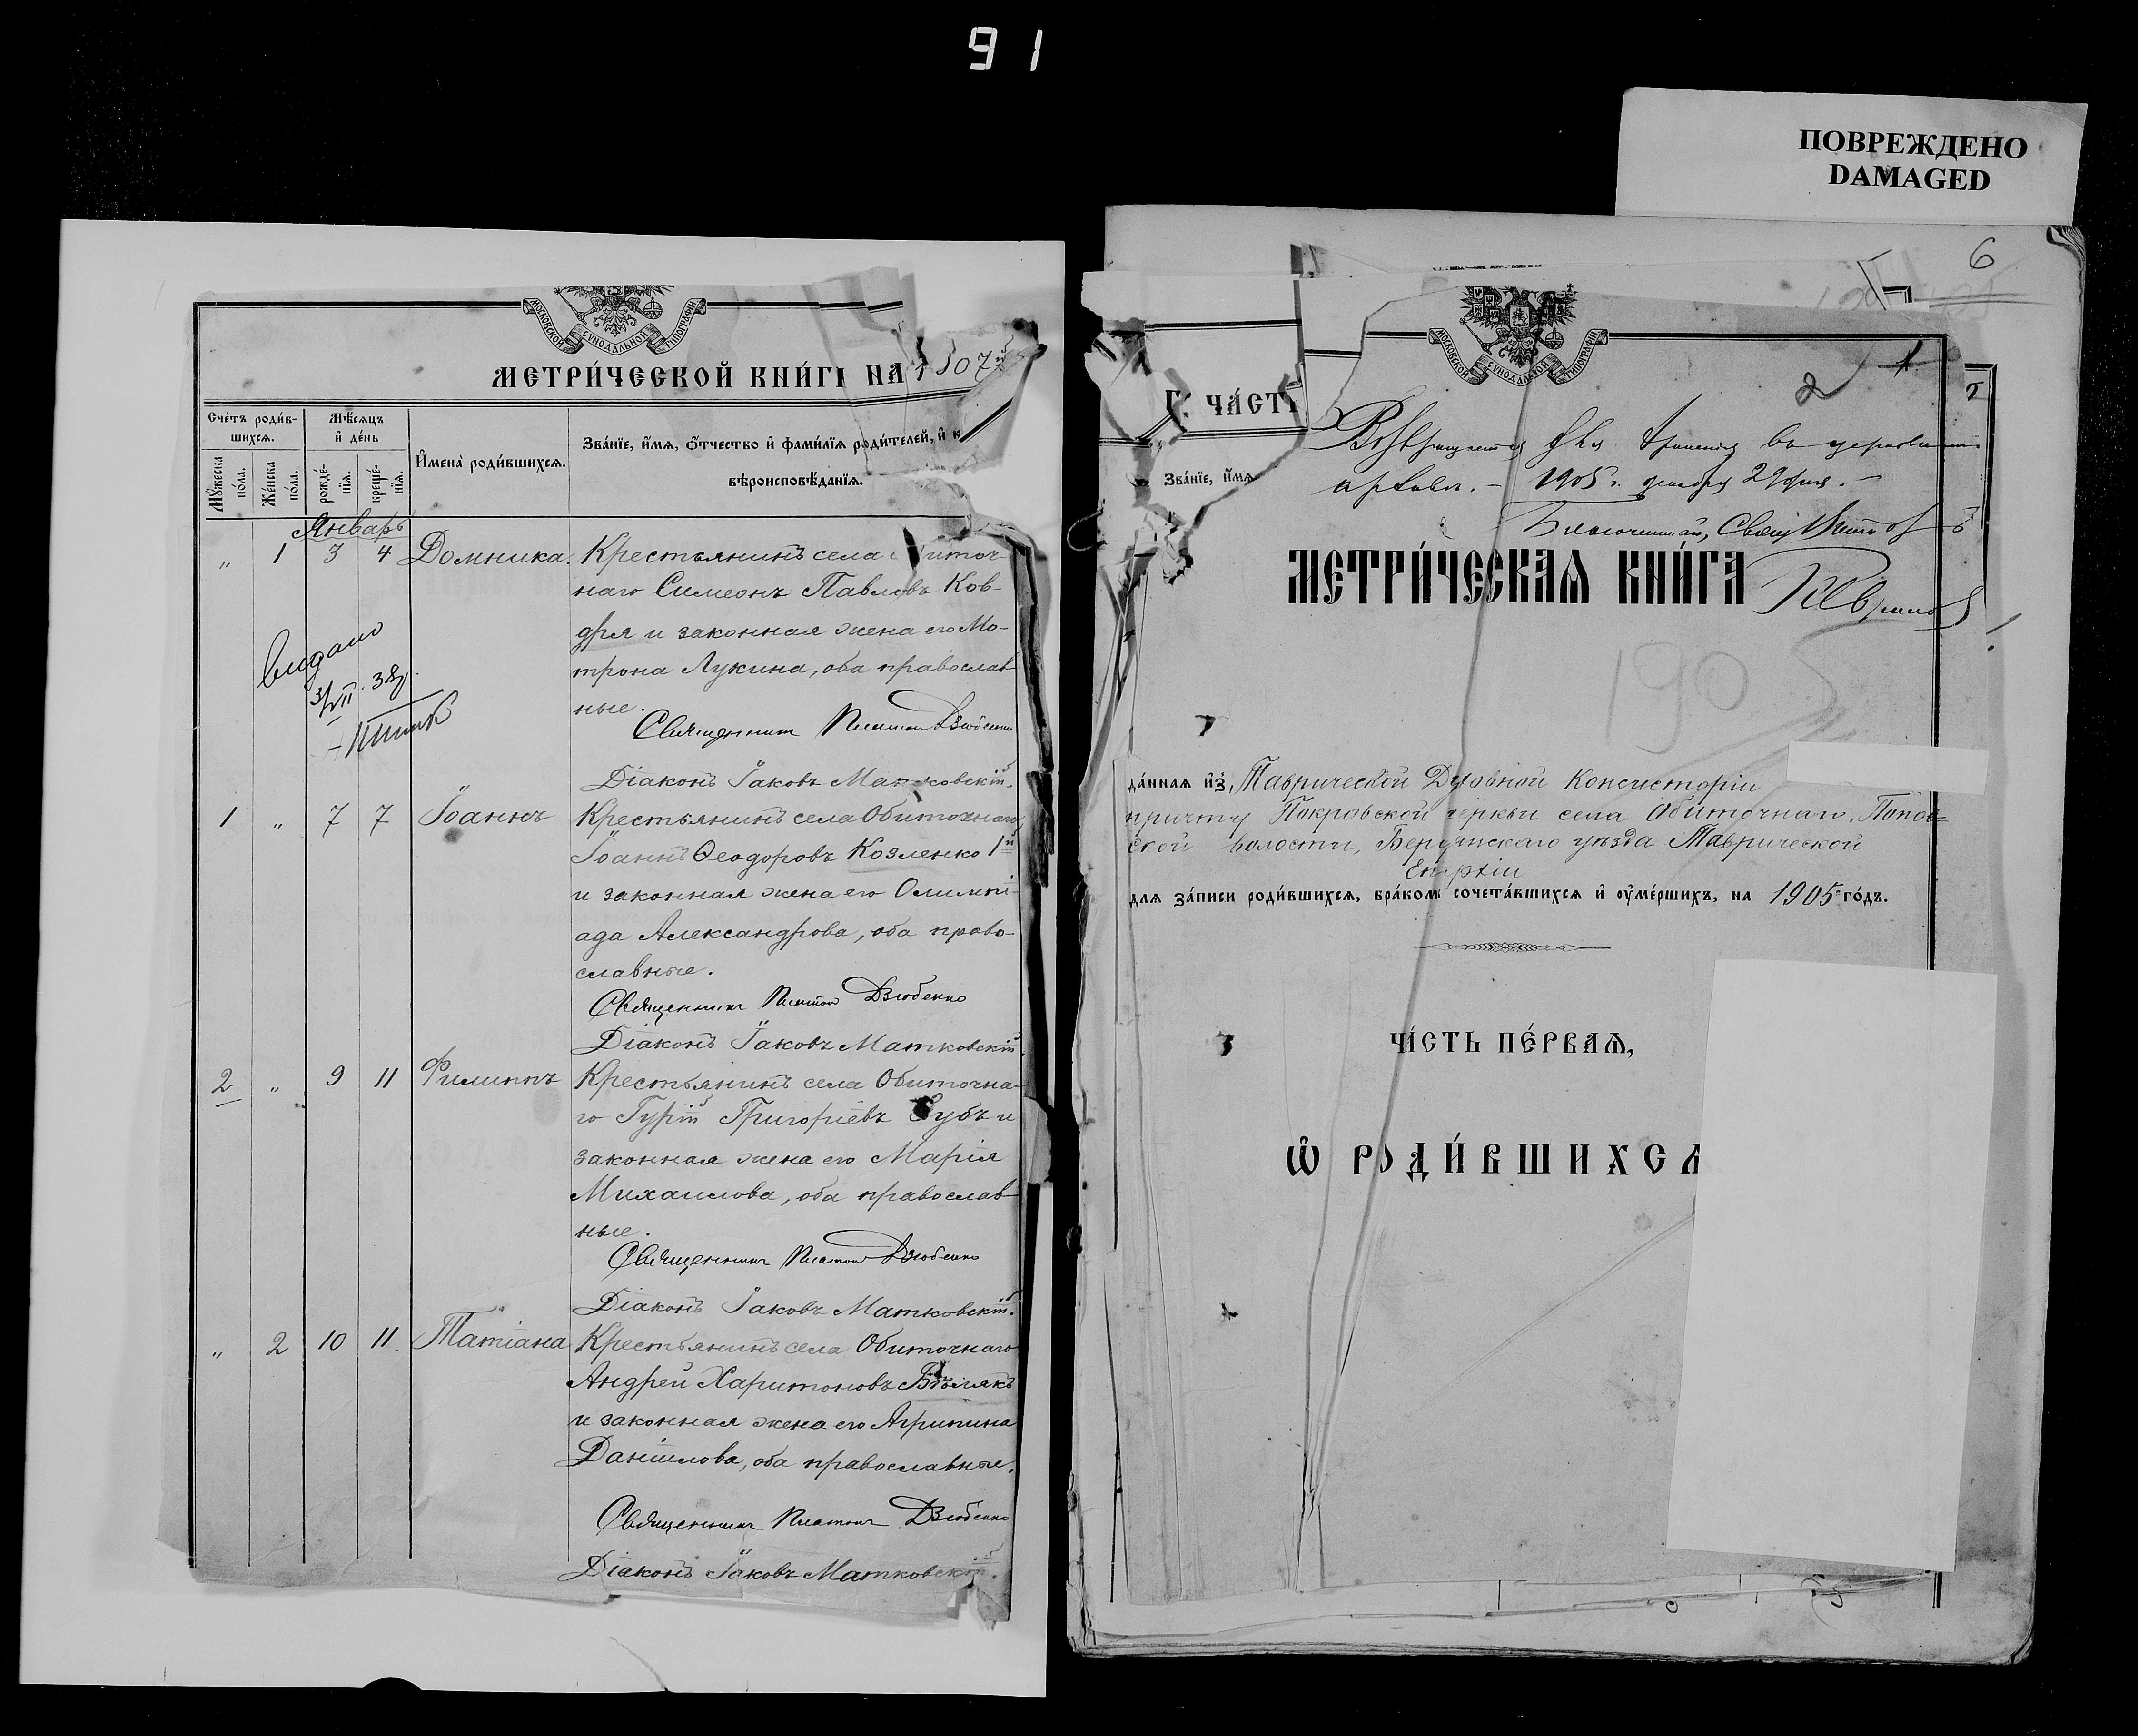 91
ПОВРЕЖДЕНО
DAMAGED
МОСКОВСКОЙ СѴНОДАЛЬНОЙ ТИПОГРАФІИ
МЕТРИ́ЧЕСКОЙ КНИ́ГИ НА 1907й
Сче́тъ роди́в-
шихсѧ.
Мѣ́сѧцъ
и҆ де́нь
Мꙋ́жеска
по́ла.
Же́нска
по́ла.
рожде́-
нїѧ.
креще́-
нїѧ.
И҆мена̀ роди́вшихсѧ.
Зва́нїе, и҆́мѧ, ѻ҆́тчество и҆ фами́лїѧ роди́телей, и҆ к
вѣроисповѣ́данїѧ.
Январь
„ 1 3 4 Домника. Крестьянинъ села Обиточ
наго Симеонъ Павловъ Ков-
дря и законная жена его Мо-
трона Лукина, оба православ
ные.
видано
Священникъ Платонъ Дзюбенко
Діаконъ Іаковъ Матковскій.
1 „ 7 7 Іоаннъ Крестьянинъ села Обиточнаго
Іоаннъ Ѳеодоровъ Козленко 1й
и законная жена его Олимпі-
ада Александрова, оба право-
славные.
Священникъ Платонъ Дзюбенко
Діаконъ Іаковъ Матковскій.
2 „ 9 11 Филиппъ Крестьянинъ села Обиточна-
го Гурій Григоріевъ Зубъ и
законная жена его Марія
Михаилова, оба православ-
ные.
Священникъ Платонъ Дзюбенко
Діаконъ Іаковъ Матковскій.
„ 2 10 11. Татіана Крестьянинъ села Обиточнаго
Андрей Харитоновъ Бѣлякъ
и законная жена его Агрипина
Даніилова, оба православные.
Священникъ Платонъ Дзюбенко
Діаконъ Іаковъ Матковскій.
6
2
МОСКОВСКОЙ СѴНОДАЛЬНОЙ ТИПОГРАФІИ
ЧА́СТЬ
Зва́нїе, и҆́мѧ
Возвращается для храненія въ церковном
архивѣ. — 1905 г. декабря 29 дня. —
Благочинный, Свящ.
МЕТРИ́ЧЕСКАѦ КНИ́ГА
1905
да́ннаѧ и҆з̾ Таврической Духовной Консисторіи
причту Покровской церкви села Обиточнаго, Попов-
ской волости, Бердянскаго уѣзда Таврической
Епархіи
длѧ за́писи роди́вшихсѧ, бра́комъ сочета́вшихсѧ и҆ ᲂу҆ме́ршихъ, на 1905 го́дъ.
ЧА́СТЬ ПЕ́РВАѦ,
Ѽ РОДИ́ВШИХСѦ